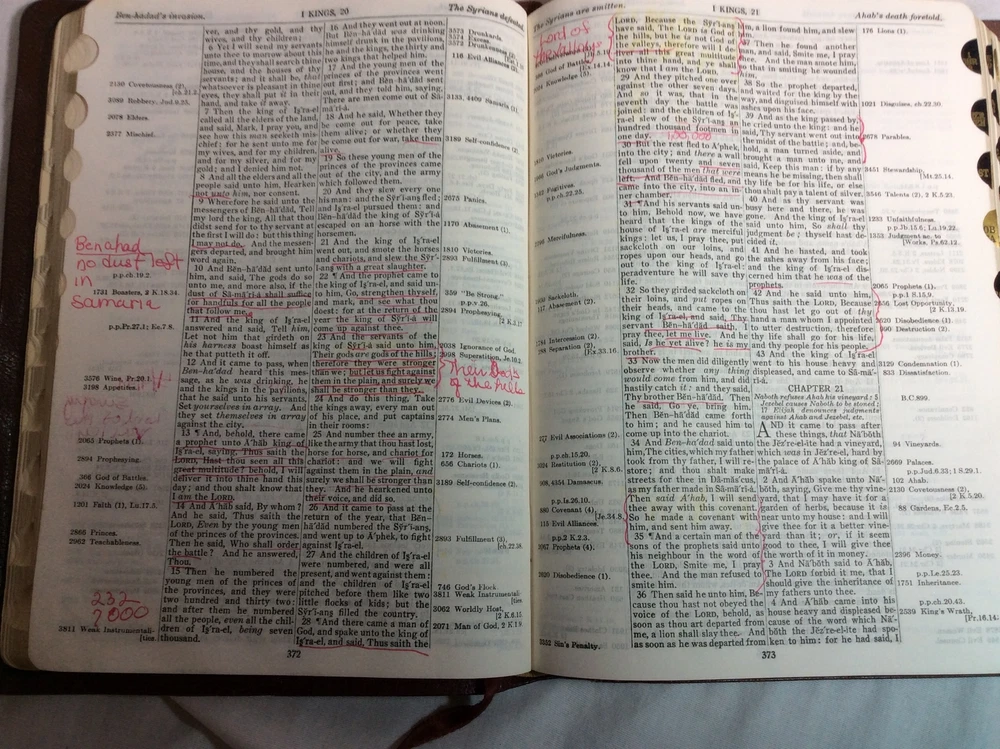 Ben-hadad's invasion.
I KINGS, 20
The Syrians defeated.
2130 Covetousness (2),
[ch.21.2.
3089 Robbery, Jud.9.25.
2078 Elders.
2377 Mischief.
Benahad
no dust left
in
Samaria
p.p.ch.19.2.
1731 Boasters, 2 K.18.34.
p.p.Pr.27.1; Ec.7.8.
2576 Wine, Pr.20.1.
2198 Appetites.
2065 Prophets (1).
2894 Prophesying.
366 God of Battles.
2024 Knowledge (5).
1201 Faith (1), Lu.17.5.
2866 Princes.
2962 Teachableness.
232
7000
3811 Weak Instrumentali-
[ties
ver, and thy gold, and thy
wives, and thy children;
6 Yet I will send my servants
unto thee to morrow about this
time, and they shall search thine
house, and the houses of thy
servants; and it shall be, that
whatsoever is pleasant in thine
eyes, they shall put it in their
hand, and take it away.
7 Then the king of Is'ra-el
called all the elders of the land,
and said, Mark, I pray you, and
see how this man seeketh mis-
chief: for he sent unto me for
my wives, and for my children,
and for my silver, and for my
gold; and I denied him not.
8 And all the elders and all the
people said unto him, Hearken
not unto him, nor consent.
9 Wherefore he said unto the
messengers of Bĕn-hā'dăd, Tell
my lord the king, All that thou
didst send for to thy servant at
the first I will do: but this thing
I may not do. And the messen-
gers departed, and brought him
word again.
10 And Bĕn-hā'dăd sent unto
him, and said, The gods do so
unto me, and more also, if the
dust of Sā-mā'rĭ-ă shall suffice
for handfuls for all the people
that follow me.
11 And the king of Is'ra-el
answered and said, Tell him,
Let not him that girdeth on
his harness boast himself as
he that putteth it off.
12 And it came to pass, when
Ben-hadad heard this mes-
sage, as he was drinking, he
and the kings in the pavilions,
that he said unto his servants,
Set yourselves in array. And
they set themselves in array
against the city.
13 ¶ And, behold, there came
a prophet unto A'hăb king of
Is'ra-el, saying, Thus saith the
LORD, Hast thou seen all this
great multitude? behold, I will
deliver it into thine hand this
day; and thou shalt know that
I am the LORD.
14 And A'hăb said, By whom?
And he said, Thus saith the
LORD, Even by the young men
of the princes of the provinces.
Then he said, Who shall order
the battle? And he answered,
Thou.
15 Then he numbered the
young men of the princes of
the provinces, and they were
two hundred and thirty two:
and after them he numbered
all the people, even all the chil-
dren of Is'ra-el, being seven
thousand.
16 And they went out at noon.
But Bĕn-hā'dăd was drinking
himself drunk in the pavilions,
he and the kings, the thirty and
two kings that helped him.
17 And the young men of the
princes of the provinces went
out first; and Bĕn-hā'dăd sent
out, and they told him, saying,
There are men come out of Sā-
mā'rĭ-ă.
18 And he said, Whether they
be come out for peace, take
them alive; or whether they
be come out for war, take them
alive.
19 So these young men of the
princes of the provinces came
out of the city, and the army
which followed them.
20 And they slew every one
his man: and the Sy̆r'ĭ-ans fled;
and Is'ra-el pursued them: and
Bĕn-hā'dăd the king of Sy̆r'ĭ-ă
escaped on an horse with the
horsemen.
21 And the king of Is'ra-el
went out, and smote the horses
and chariots, and slew the Sy̆r'ĭ-
ans with a great slaughter.
22 ¶ And the prophet came to
the king of Is'ra-el, and said un-
to him, Go, strengthen thyself,
and mark, and see what thou
doest: for at the return of the
year the king of Sy̆r'ĭ-ă will
come up against thee.
23 And the servants of the
king of Sy̆r'ĭ-ă said unto him,
Their gods are gods of the hills;
therefore they were stronger
than we; but let us fight against
them in the plain, and surely we
shall be stronger than they.
24 And do this thing, Take
the kings away, every man out
of his place, and put captains
in their rooms:
25 And number thee an army,
like the army that thou hast lost,
horse for horse, and chariot for
chariot: and we will fight
against them in the plain, and
surely we shall be stronger than
they. And he hearkened unto
their voice, and did so.
26 And it came to pass at the
return of the year, that Bĕn-
hā'dăd numbered the Sy̆r'ĭ-ans,
and went up to A'phek, to fight
against Is'ra-el.
27 And the children of Is'ra-el
were numbered, and were all
present, and went against them:
and the children of Is'ra-el
pitched before them like two
little flocks of kids; but the
Sy̆r'ĭ-ans filled the country.
28 ¶ And there came a man of
God, and spake unto the king of
Is'ra-el, and said, Thus saith the
3573 Drunkards.
116 Evil Alliances
3133, 4409 Samaria
3189 Self-confidence (2).
2075 Panics.
1170 Abasement (1).
1810 Victories.
2893 Fulfillment (3).
359 "Be Strong,"
p.p.v.26.
2894 Prophesying,
[2 K.3.17
2038 Ignorance of God.
2998 Superstition,
Their Gods
of the hills
2776 Evil Devices (2).
2774 Men's Plans.
172 Horses.
656 Chariots (1).
3189 Self-confidence (2).
2893 Fulfillment (3),
[ch.22.38.
746 God's Flock
3811 Weak Instrumentali-
[ties
3062 Worldly Host,
[2 K.6.15.
2071 Man of God, 2 K.1.9
372
The Syrians are smitten.
I KINGS, 21
Ahab's death foretold.
Knowledge (5).
1810 Victories.
God's Judgments.
Fugitives,
p.p.ch.22.25.
Mercifulness.
Sackcloth.
Abasement (2).
Intercession (2).
Separation
[Ex.33.16.
Evil Associations (2).
p.p.ch.15.20.
Restitution (2),
[2 K.8.6.
4354 Damascus.
p.p.Is.26.10.
Covenant (4),
[Je.34.8.
115 Evil Alliances.
p.p.2 K.2.3.
Prophets (4).
Disobedience (1).
Sin's Penalty.
LORD, Because the Sy̆r'ĭ-ans
have said, The LORD is God of
the hills, but he is not God of
the valleys, therefore will I de-
liver all this great multitude
into thine hand, and ye shall
know that I am the LORD.
29 And they pitched one over
against the other seven days.
And so it was, that in the
seventh day the battle was
joined: and the children of Is'-
ra-el slew of the Sy̆r'ĭ-ans an
hundred thousand footmen in
one day.
100,000
30 But the rest fled to A'phek,
into the city; and there a wall
fell upon twenty and seven
thousand of the men that were
left. And Bĕn-hā'dăd fled, and
came into the city, into an in-
ner chamber.
31 ¶ And his servants said un-
to him, Behold now, we have
heard that the kings of the
house of Is'ra-el are merciful
kings: let us, I pray thee, put
sackcloth on our loins, and
ropes upon our heads, and go
out to the king of Is'ra-el:
peradventure he will save thy
life.
32 So they girded sackcloth on
their loins, and put ropes on
their heads, and came to the
king of Is'ra-el, and said, Thy
servant Bĕn-hā'dăd saith, I
pray thee, let me live. And he
said, Is he yet alive? he is my
brother.
33 Now the men did diligently
observe whether any thing
would come from him, and did
hastily catch it: and they said,
Thy brother Bĕn-hā'dăd. Then
he said, Go ye, bring him.
Then Bĕn-hā'dăd came forth
to him; and he caused him to
come up into the chariot.
34 And Ben-hadad said unto
him, The cities, which my father
took from thy father, I will re-
store; and thou shalt make
streets for thee in Dă-măs'cus,
as my father made in Sā-mā'rĭ-ă.
Then said A'hăb, I will send
thee away with this covenant.
So he made a covenant with
him, and sent him away.
35 ¶ And a certain man of the
sons of the prophets said unto
his neighbour in the word of
the LORD, Smite me, I pray
thee. And the man refused to
smite him.
36 Then said he unto him, Be-
cause thou hast not obeyed the
voice of the LORD, behold, as
soon as thou art departed from
me, a lion shall slay thee. And
as soon as he was departed from
him, a lion found him, and slew
him.
37 Then he found another
man, and said, Smite me, I pray
thee. And the man smote him,
so that in smiting he wounded
him.
38 So the prophet departed,
and waited for the king by the
way, and disguised himself with
ashes upon his face.
39 And as the king passed by,
he cried unto the king: and he
said, Thy servant went out into
the midst of the battle; and, be-
hold, a man turned aside, and
brought a man unto me, and
said, Keep this man: if by any
means he be missing, then shall
thy life be for his life, or else
thou shalt pay a talent of silver.
40 And as thy servant was
busy here and there, he was
gone. And the king of Is'ra-el
said unto him, So shall thy
judgment be; thyself hast de-
cided it.
41 And he hasted, and took
the ashes away from his face;
and the king of Is'ra-el dis-
cerned him that he was of the
prophets.
42 And he said unto him,
Thus saith the LORD, Because
thou hast let go out of thy
hand a man whom I appointed
to utter destruction, therefore
thy life shall go for his life,
and thy people for his people.
43 And the king of Is'ra-el
went to his house heavy and
displeased, and came to Sā-mā'-
rĭ-ă.
CHAPTER 21
Naboth refuses Ahab his vineyard: 5
Jezebel causes Naboth to be stoned:
17 Elijah denounces judgments
against Ahab and Jezebel, etc.
AND it came to pass after
these things, that Nā'bŏth
the Jĕz're-el-ite had a vineyard,
which was in Jĕz're-el, hard by
the palace of A'hăb king of Sā-
mā'rĭ-ă.
2 And A'hăb spake unto Nā'-
bŏth, saying, Give me thy vine-
yard, that I may have it for a
garden of herbs, because it is
near unto my house: and I will
give thee for it a better vine-
yard than it; or, if it seem
good to thee, I will give thee
the worth of it in money.
3 And Nā'bŏth said to A'hăb,
The LORD forbid it me, that I
should give the inheritance of
my fathers unto thee.
4 And A'hăb came into his
house heavy and displeased be-
cause of the word which Nā'-
bŏth the Jĕz're-el-ite had spo-
ken to him: for he had said, I
176 Lions (1).
1021 Disguises, ch.22.30.
2678 Parables.
3451 Stewardship,
[Mt.25.14.
3546 Talents (2), 2 K.5.23.
1233 Unfaithfulness.
p.p.Jb.15.6; Lu.19.22.
1333 Judgment ac. to
[Works, Ps.62.12.
2065 Prophets (1).
p.p.1 S.15.9.
2556 Lost Opportunity,
[2 K.13.19.
Disobedience (1).
Destruction (2).
3129 Condemnation (1).
833 Dissatisfaction.
B.C.899.
94 Vineyards.
2669 Palaces.
p.p.Jud.6.33; 1 S.29.1.
102 Ahab.
2130 Covetousness (2),
[2 K.5.20.
88 Gardens, Ec.2.5.
2396 Money.
p.p.Le.25.23.
1751 Inheritance.
p.p.ch.20.43.
2539 King's Wrath,
[Pr.16.14
373